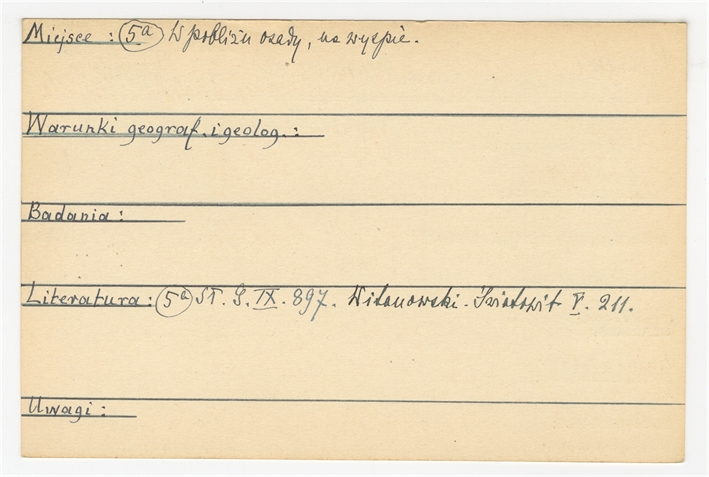 Miejsce : 5a W pobliżu osady, na wyspie.
Warunki geograf. i geolog. :
Badania :
Literatura : 5a Sł. G. IX. 897. Witanowski - Światowit V. 211.
Uwagi :